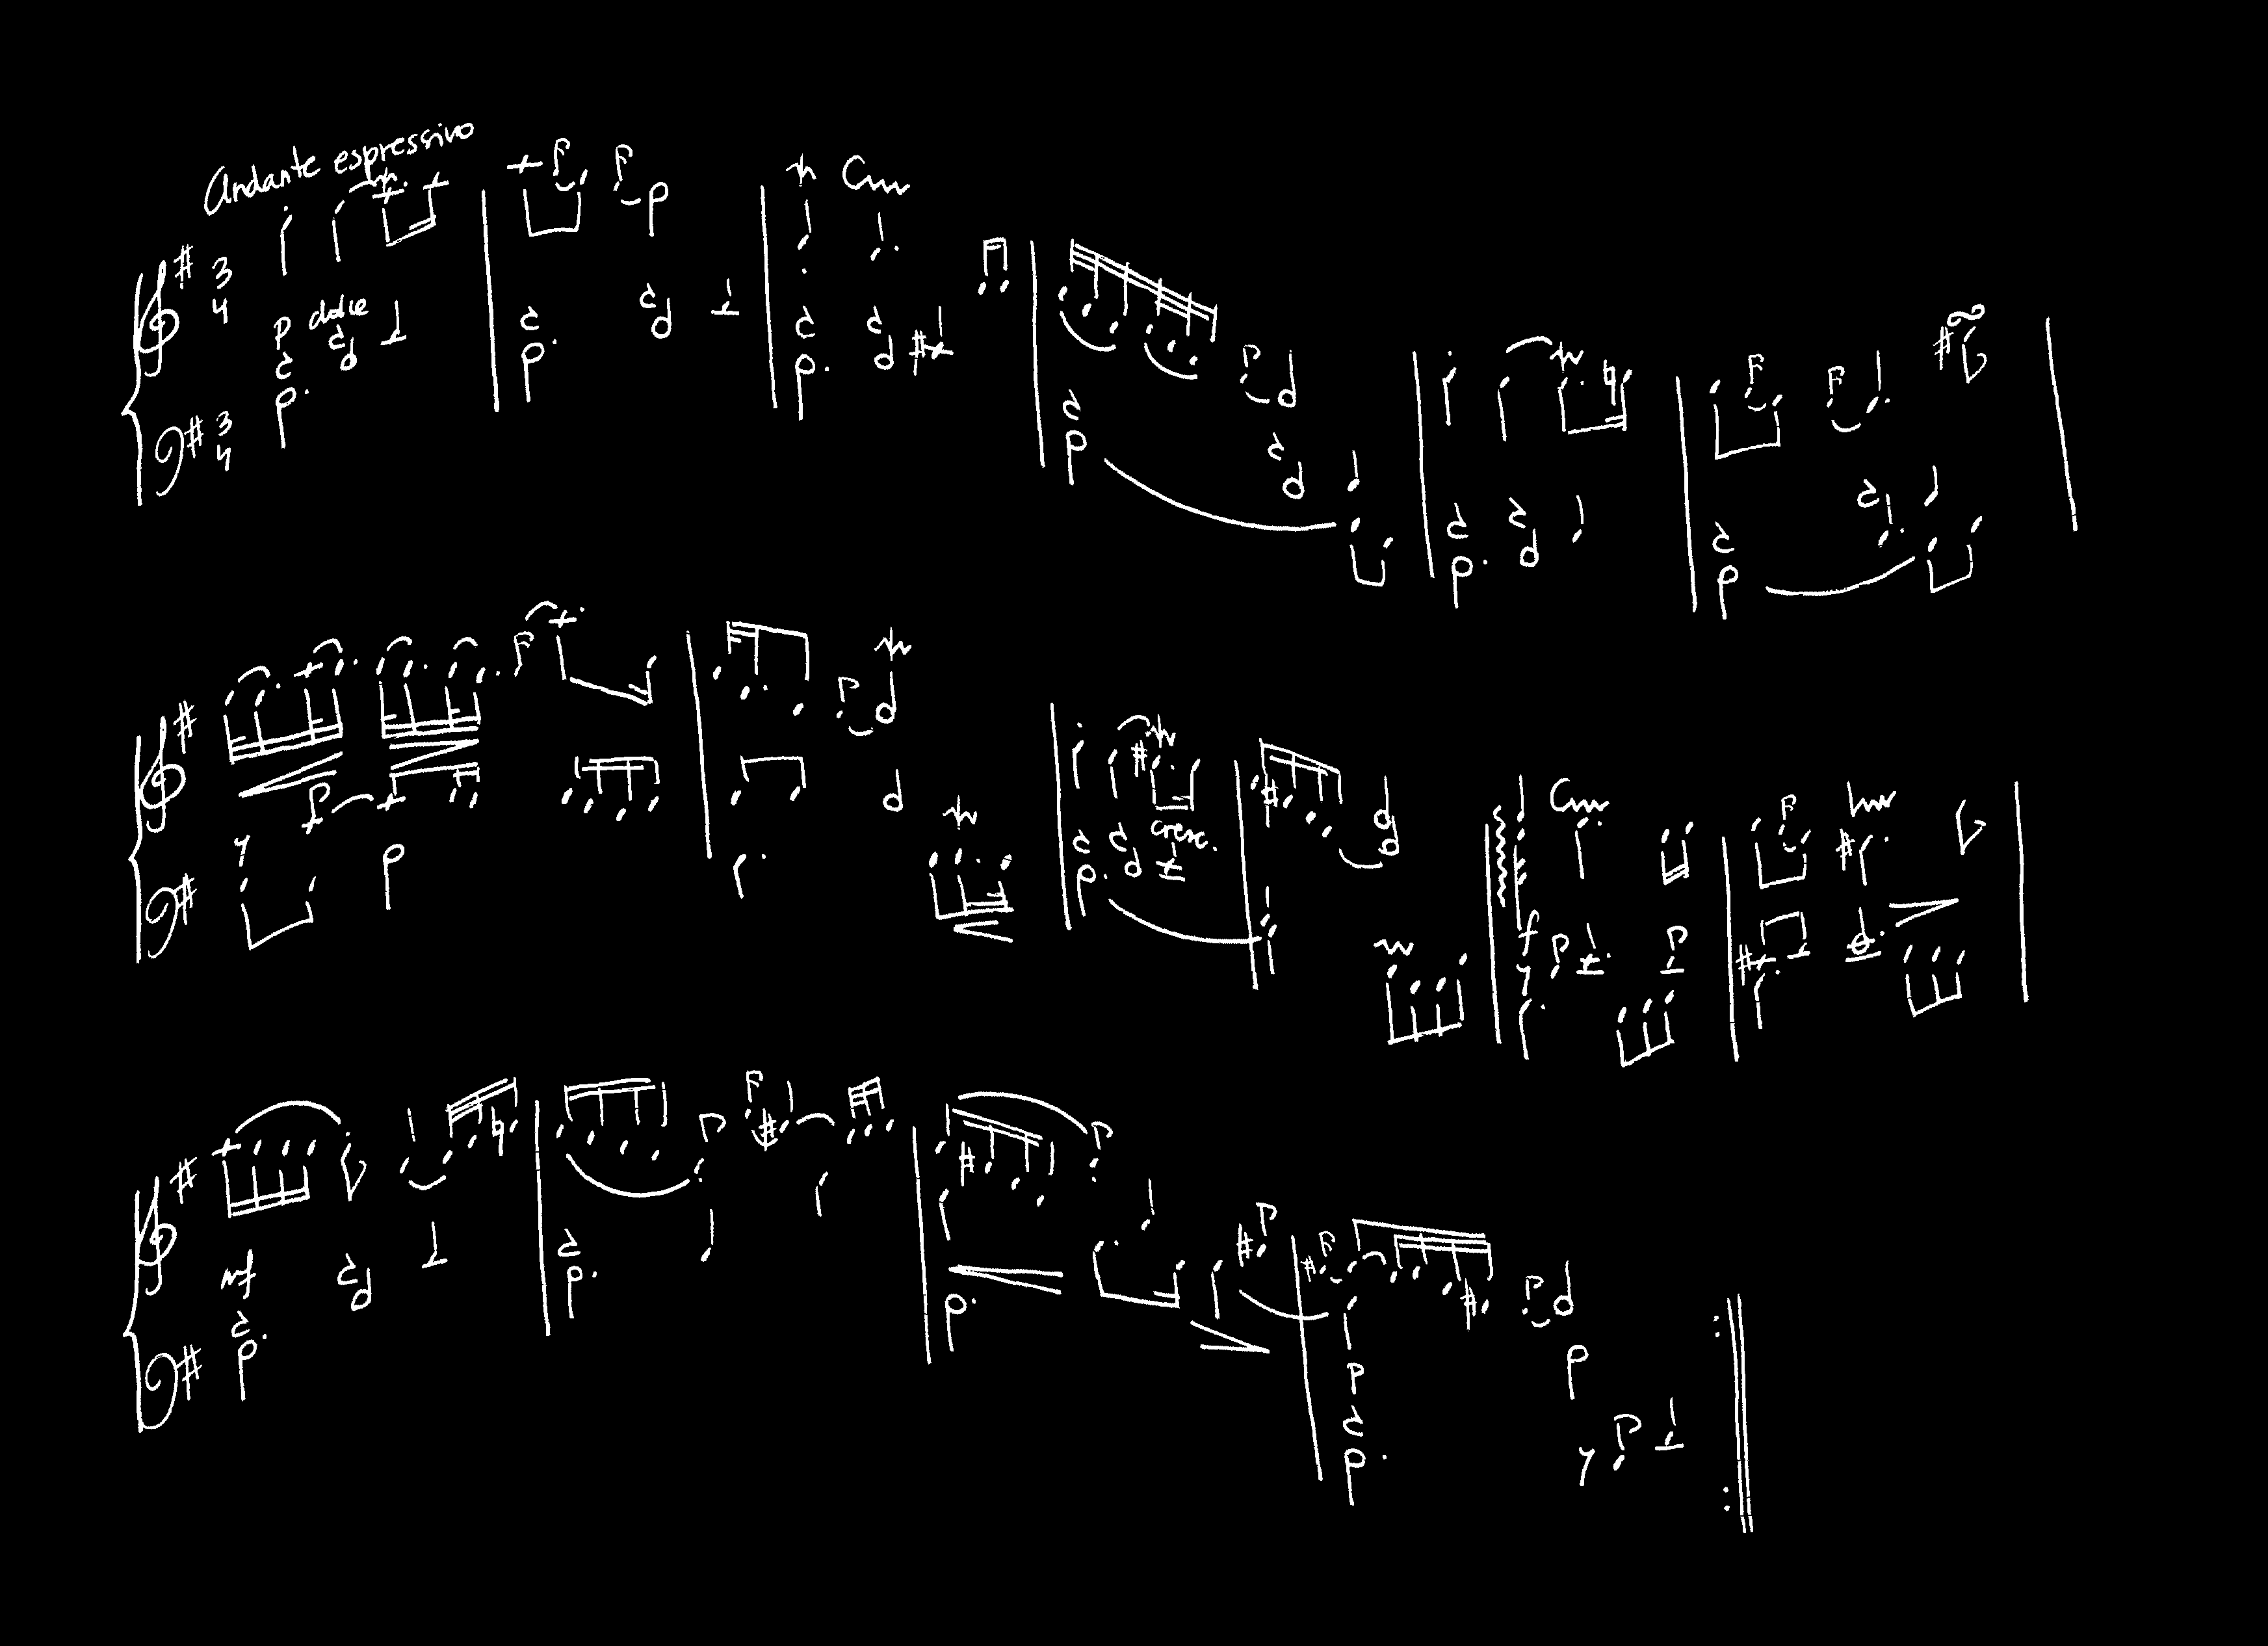 Andante espressivo
3
4
p dolce
3
4
f
cresc.
f
mf
p